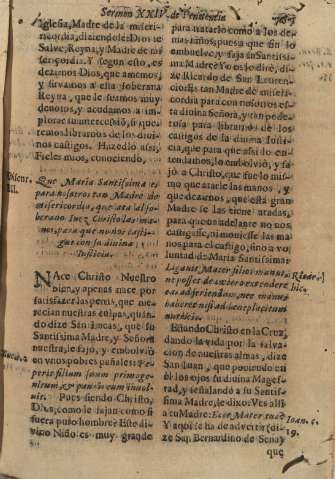 Sermon XXIV. de Penitencia
Iglesia, Madre de la miseri-
cordia, diziendole: Dios te
Salve, Reyna, y Madre de mi-
sericordia. Y segun esto, es-
dezirnos Dios, que amemos,
y sirvamos a esta soberana
Reyna, que le seamos muy
devotos, y acudamos a im-
plorar su intercession, si que-
remos librarnos de los divi-
nos castigos. Hazedlo assi,
Fieles mios, conociendo,
Discur.
III.
Que Maria Santissima es
para nosotros tan Madre de
misericordia, que ata al so-
berano Iuez Christo las ma-
nos, para que no nos casti-
gue con su divina
Iusticia.
NAce Christo Nuestro
Bien, y apenas nace por
satisfazer las penas, que me-
recian nuestras culpas, quan-
do dize San Lucas, que su
Santissima Madre, y Señora
nuestra, le fajò, y embolviò
en vnos pobres pañales: Pe-
perit filium suum primoge-
nitum, & pannis eum invol-
vit. Pues siendo Christo,
Dios, como le fajan como si
fuera puro hombre? Este di-
vino Niño es muy grande
para tratarlo como a los de-
mas niños, pues a que fin lo
embuelve, y faja su Santissi-
ma Madre? Yo os lo dirè, di-
ze Ricardo de San Lauren-
cio: Es tan Madre de miseri-
cordia para con nosotros es-
ta divina Señora, y tan pode-
rosa para librarnos de los
castigos de la divina Iusti-
cia, que para que assi lo en-
tendamos, lo embolviò, y fa-
jò a Christo, que fue lo mis-
mo que atarle las manos, y
que dezirnos, que esta gran
Madre se las tiene atadas,
para que en adelante no nos
castigasse, ni moviesse las ma-
nos para el castigo, sino a vo-
luntad de Maria Santissima:
Ligavit Mater filio manus, ne
posset de cætero extendere
eas ad feriendum, nec manus
haberet nisi ad beneplacitum
matris.
Estando Christo en la Cruz,
dando la vida por la salva-
cion de nuestras almas, dize
San Iuan, que poniendo en
ella los ojos su divina Mages-
tad, y señalando a su Santis-
sima Madre, le dixo: Ves alli
a tu Madre: Ecce Mater tua?
Y aqui se ha de advertir (di-
ze San Bernardino de Sena)
Ioan. c.
19.
que